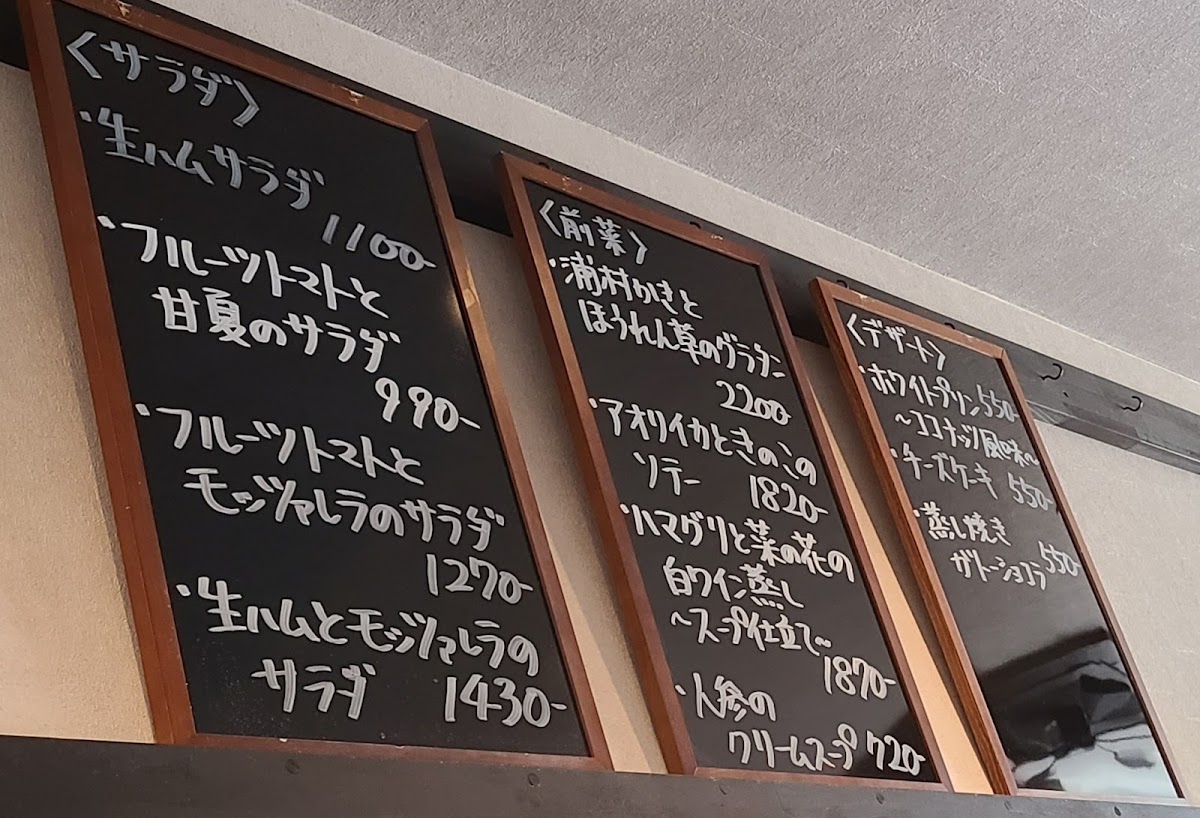 〈サラダ〉
・生ハムサラダ
1100-
・フルーツトマトと
甘夏のサラダ
990-
・フルーツトマトと
モッツァレラのサラダ
1270-
・生ハムとモッツァレラの
サラダ 1430-
〈前菜〉
・浦村かきと
ほうれん草のグラタン
2200-
・アオリイカときのこの
ソテー 1820-
・ハマグリと菜の花の
白ワイン蒸し
〜スープ仕立て〜
1870-
・人参の
クリームスープ 720-
〈デザート〉
・ホワイトプリン 550-
〜ココナッツ風味〜
・チーズケーキ 550-
・蒸し焼き
ガトーショコラ 550-